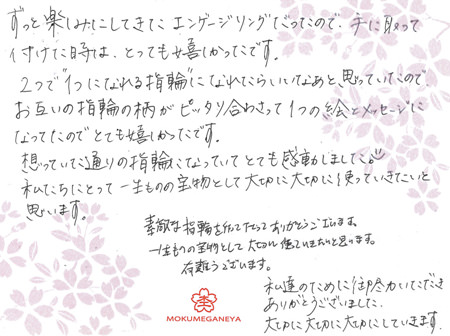 ずっと楽しみにしてきたエンゲージリングだったので、手に取って
付けた時は、とっても嬉しかったです。
2つで"1つになれる指輪"になれたらいいなあと思っていたので
お互いの指輪の柄がピッタリ合わさって1つの絵とメッセージに
なってたのでとても嬉しかったです。
想っていた通りの指輪になっていてとても感動しました。
私たちにとって一生ものの宝物として大切に大切に使っていきたいと
思います。
素敵な指輪を作って下さってありがとうございます。
一生ものの宝物として大切に使っていきたいと思います。
有難うございます。
私達のために御尽力いただき
ありがとうございました。
大切に大切に大切にしていきます。
MOKUMEGANEYA